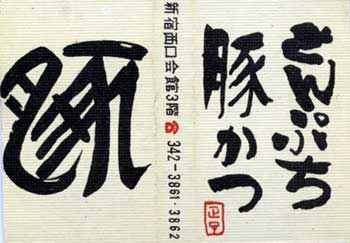 とんぷち
豚かつ
新宿西口会館3階☎342-3861・3862
豚